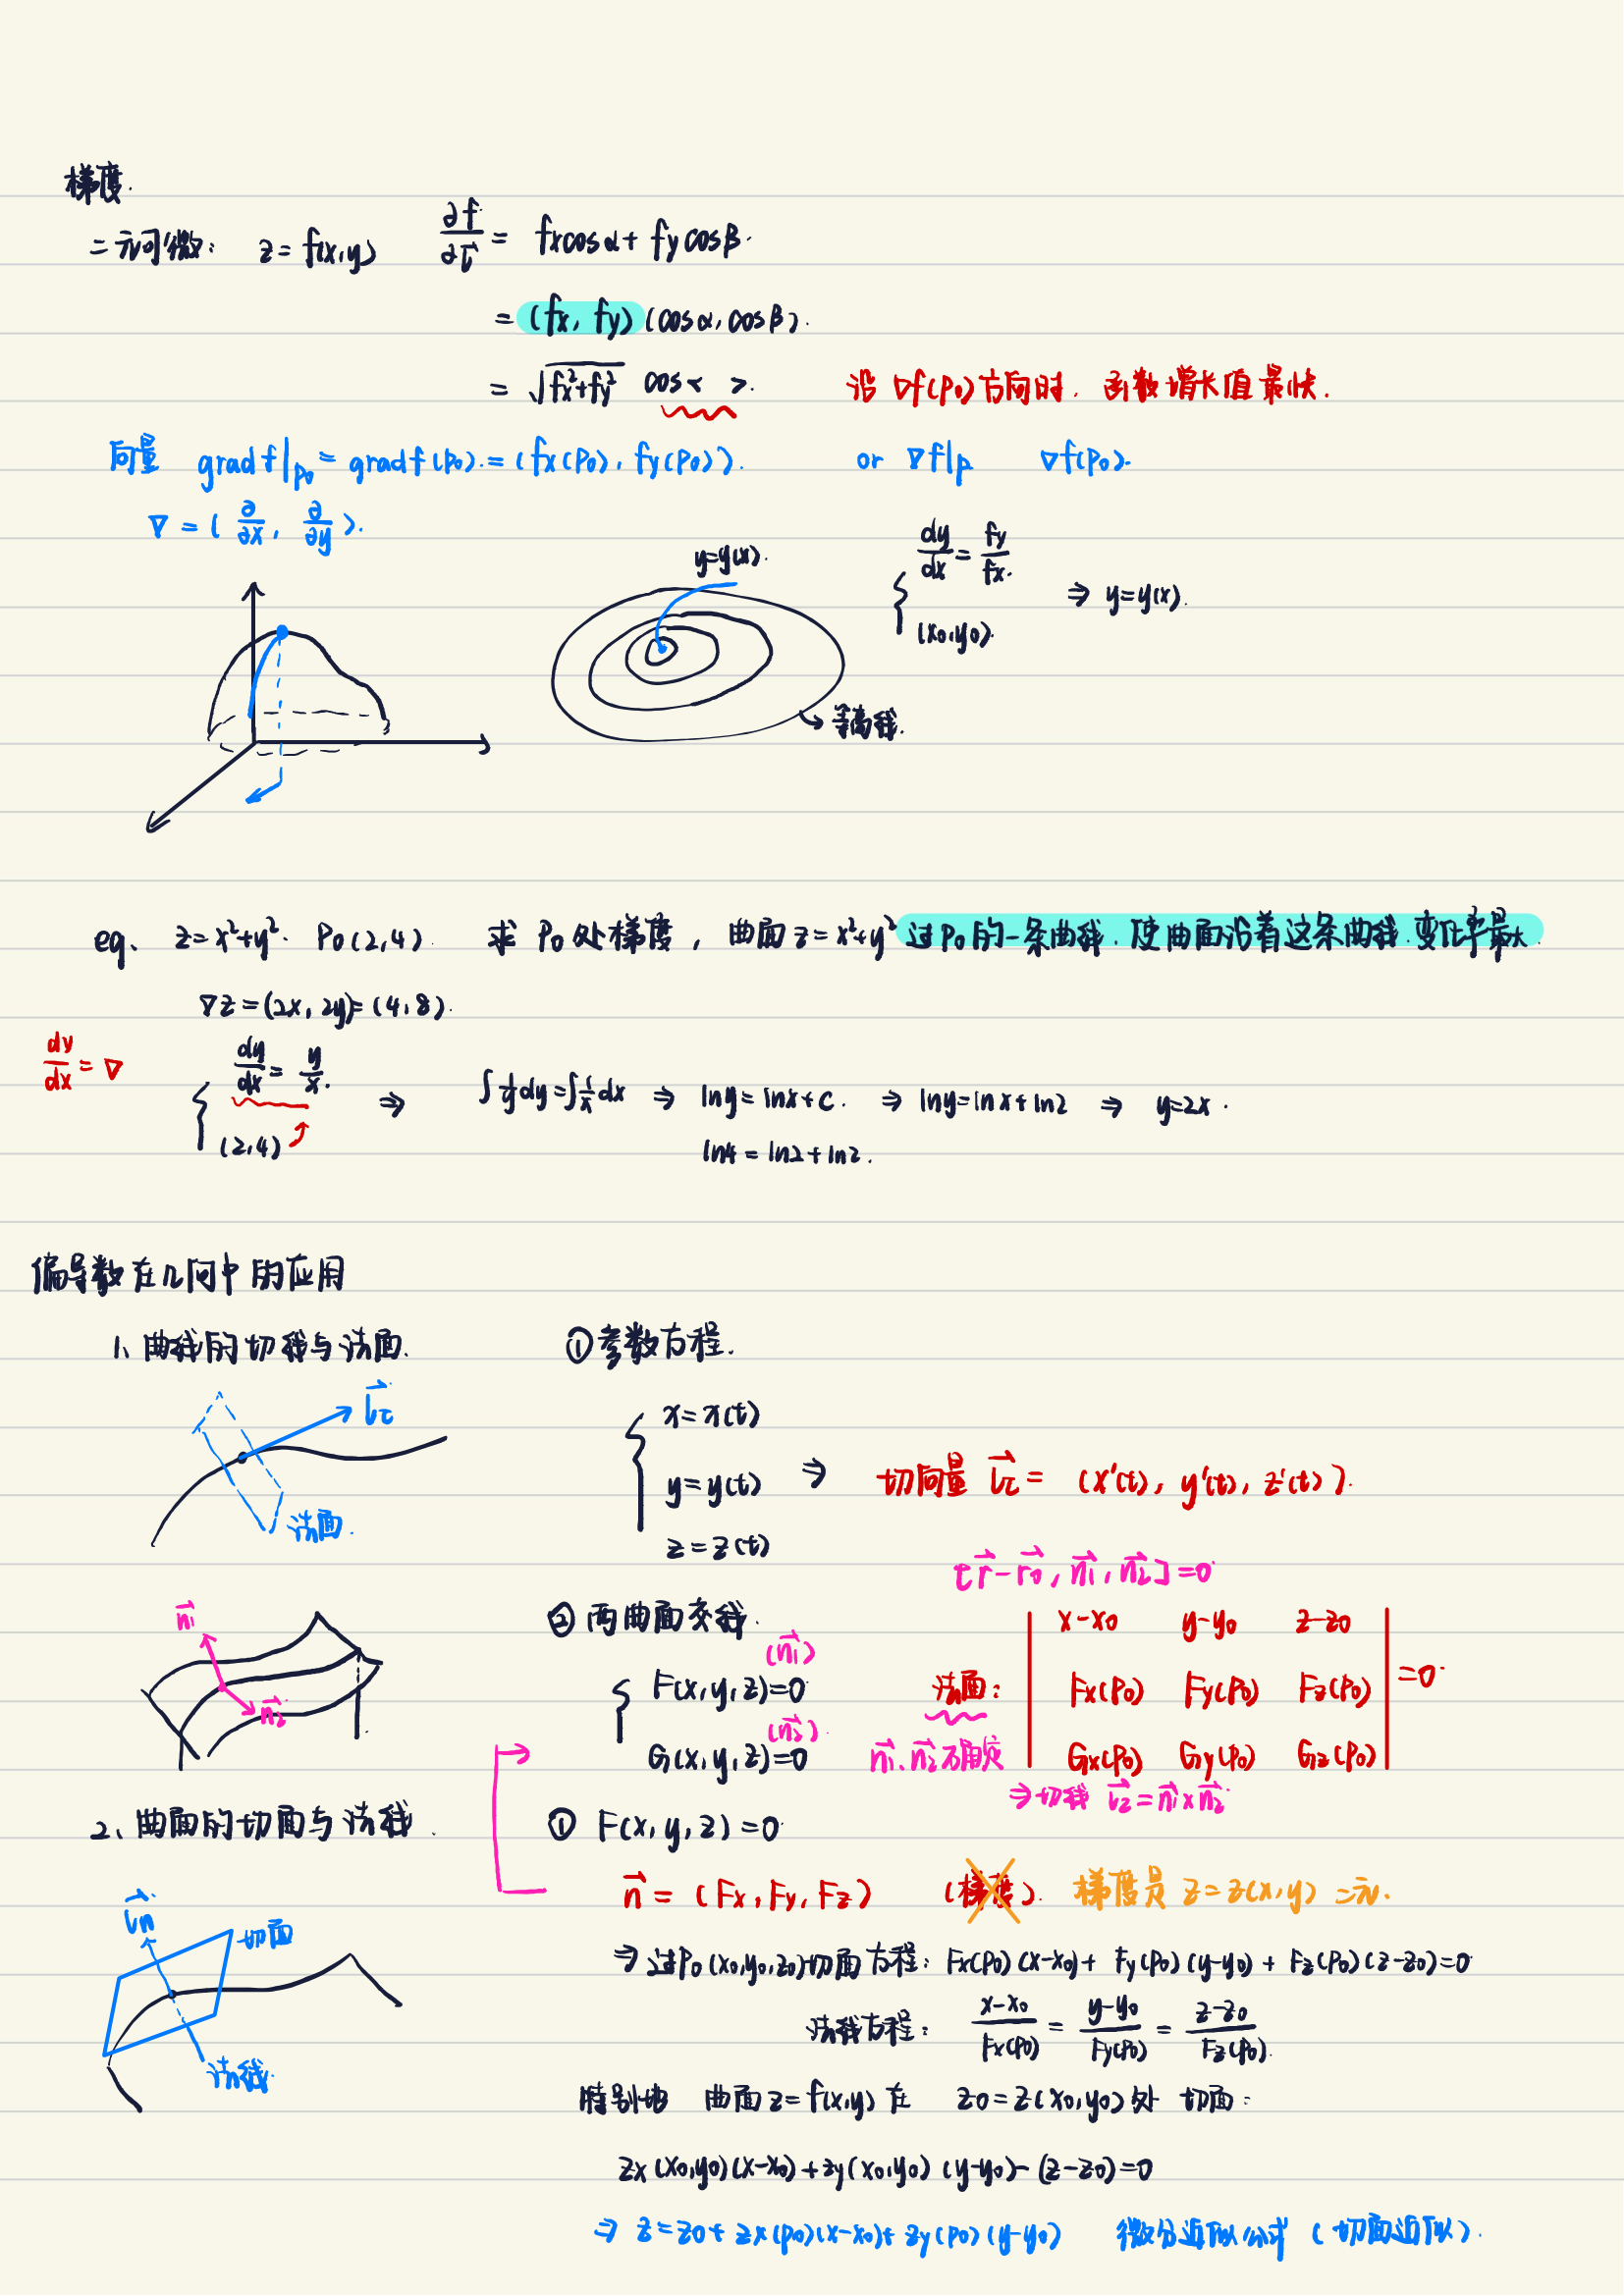 梯度.
二元可微: z=f(x,y) ∂f/∂l⃗ = fx cosα + fy cosβ.
= (fx, fy) (cosα, cosβ).
= √(fx²+fy²) cos< >. 沿 ∇f(P0) 方向时. 函数增长值最快.
向量 grad f|P0 = grad f(P0). = (fx(P0), fy(P0)). or ∇f|P ∇f(P0).
∇ = (∂/∂x, ∂/∂y).
y=y(x).
{ dy/dx = fy/fx. (x0,y0). ⇒ y=y(x).
等高线.
eg、 z=x²+y². P0(2,4). 求 P0 处梯度, 曲面 z=x²+y² 过P0的一条曲线. 使曲面沿着这条曲线. 变化率最大.
∇z=(2x, 2y)=(4,8).
dy/dx = ∇
{ dy/dx = y/x. (2,4) ⇒ ∫1/y dy=∫1/x dx ⇒ lny=lnx+c. ⇒ lny=lnx+ln2 ⇒ y=2x.
ln4=ln2+ln2.
偏导数在几何中的应用
1、曲线的切线与法面. ①参数方程.
l⃗τ
法面.
{ x=x(t)
y=y(t) ⇒ 切向量 l⃗τ = (x'(t), y'(t), z'(t)).
z=z(t)
[r⃗-r⃗0, n⃗1, n⃗2]=0
n⃗1
n⃗2
②两曲面交线.
{ F(x,y,z)=0 (n⃗1)
G(x,y,z)=0 (n⃗2).
法面: | x-x0 y-y0 z-z0 |
| Fx(P0) Fy(P0) Fz(P0) | =0.
| Gx(P0) Gy(P0) Gz(P0) |
n⃗1、n⃗2不确定
⇒切线 l⃗τ=n⃗1×n⃗2
2、曲面的切面与法线. ① F(x,y,z)=0
n⃗ = (Fx, Fy, Fz) (梯度). 梯度是 z=z(x,y) 二元.
l⃗n
切面
法线
⇒过P0(x0,y0,z0)切面方程: Fx(P0)(x-x0)+ Fy(P0)(y-y0)+ Fz(P0)(z-z0)=0
法线方程: (x-x0)/Fx(P0) = (y-y0)/Fy(P0) = (z-z0)/Fz(P0).
特别地 曲面z=f(x,y)在 z0=z(x0,y0)处 切面:
zx(x0,y0)(x-x0)+zy(x0,y0)(y-y0)-(z-z0)=0
⇒ z=z0+zx(P0)(x-x0)+zy(P0)(y-y0) 微分近似公式 (切面近似).